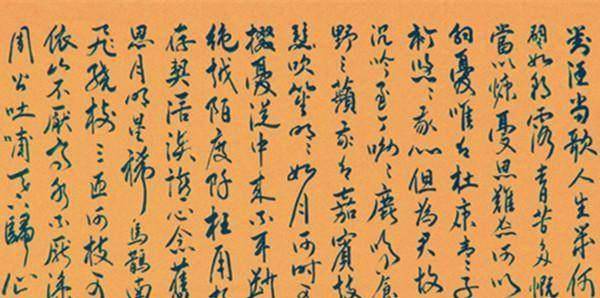 對酒當歌人生幾何
譬如朝露去日苦多慨
當以慷憂思難忘何以
解憂唯有杜康青々子
衿悠々我心但為君故
沉吟至今呦々鹿鳴食
野之蘋我有嘉賓鼓
瑟吹笙明々如月何時可
掇憂從中來不可斷
絕越陌度阡枉用相
存契闊談讌心念舊
恩月明星稀烏鵲南
飛繞枝三匝何枝可
依山不厭高水不厭深
周公吐哺天下歸心